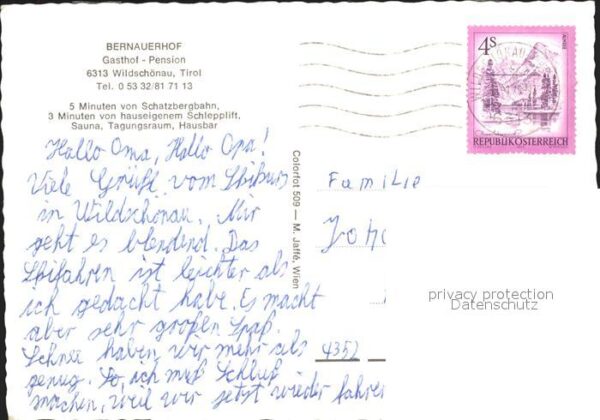 BERNAUERHOF
Gasthof - Pension
6313 Wildschönau, Tirol
Tel. 0 53 32/81 71 13
5 Minuten von Schatzbergbahn,
3 Minuten von hauseigenem Schlepplift,
Sauna, Tagungsraum, Hausbar
Hallo Oma, Hallo Opa!
Viele Grüße vom Skikurs
in Wildschönau. Mir
geht es blendend. Das
Skifahren ist leichter als
ich gedacht habe. Es macht
aber sehr großen Spaß.
Schnee haben wir mehr als
genug. So, ich muß Schluß
machen, weil wir jetzt wieder fahren
Colorfot 509 — M. Jaffé, Wien
4S
REPUBLIK ÖSTERREICH
Familie
4352
privacy protection
Datenschutz